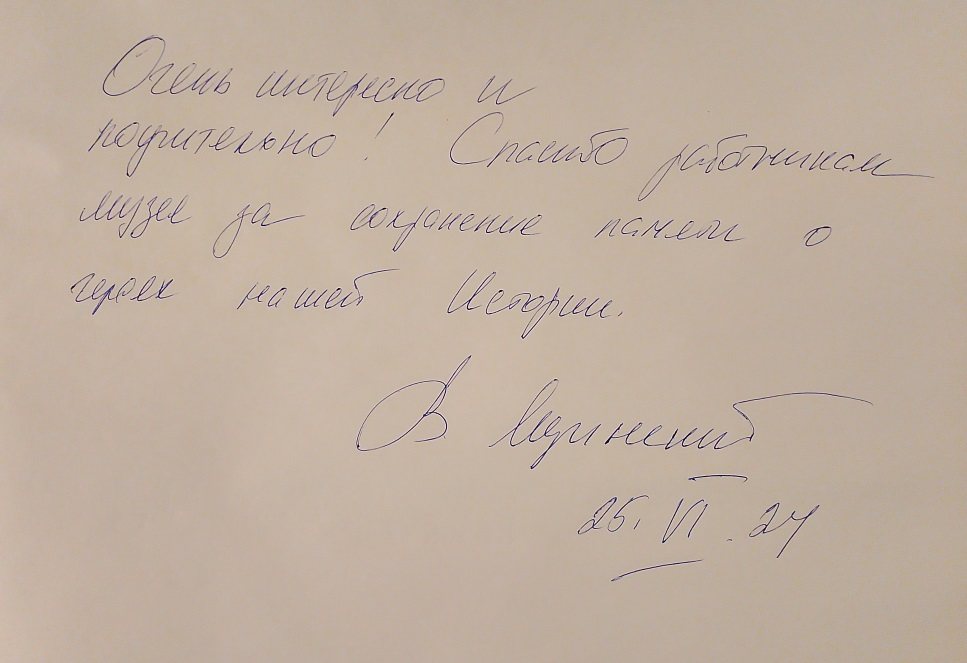 Очень интересно и
поучительно! Спасибо работникам
музея за сохранение памяти о
героях нашей Истории.
В Мединский
25. VI. 24